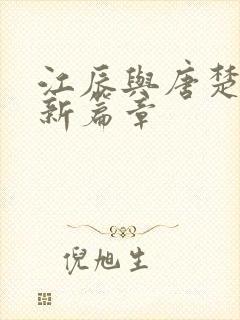 江辰與唐楚
新篇章
倪旭生